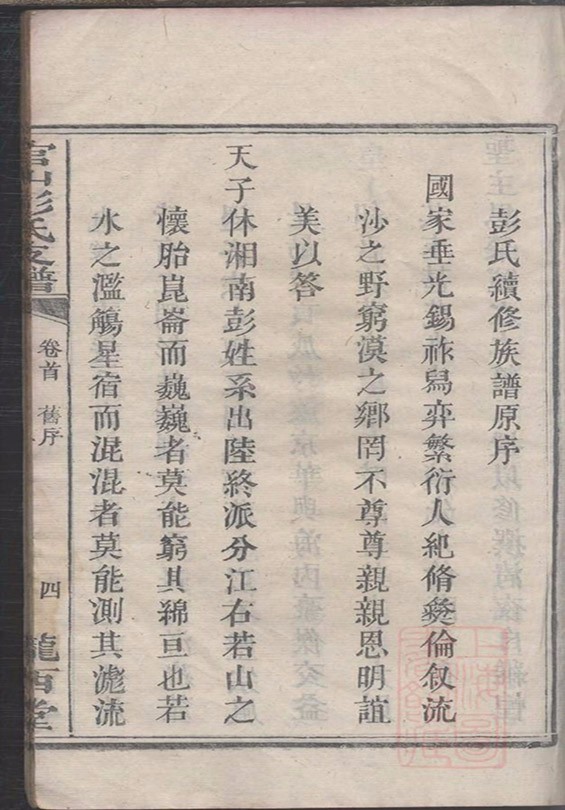 彭氏續修族譜原序
國家垂光錫祚舄弈繁衍人紀脩彝倫叙流
沙之野窮漠之鄉罔不尊尊親親恩明誼
美以答
天子休湘南彭姓系出陸終派分江右若山之
懷胎崑崙而巍巍者莫能窮其綿亘也若
水之濫觴星宿而混混者莫能測其滮流
官山彭氏支譜
卷首
舊序
四